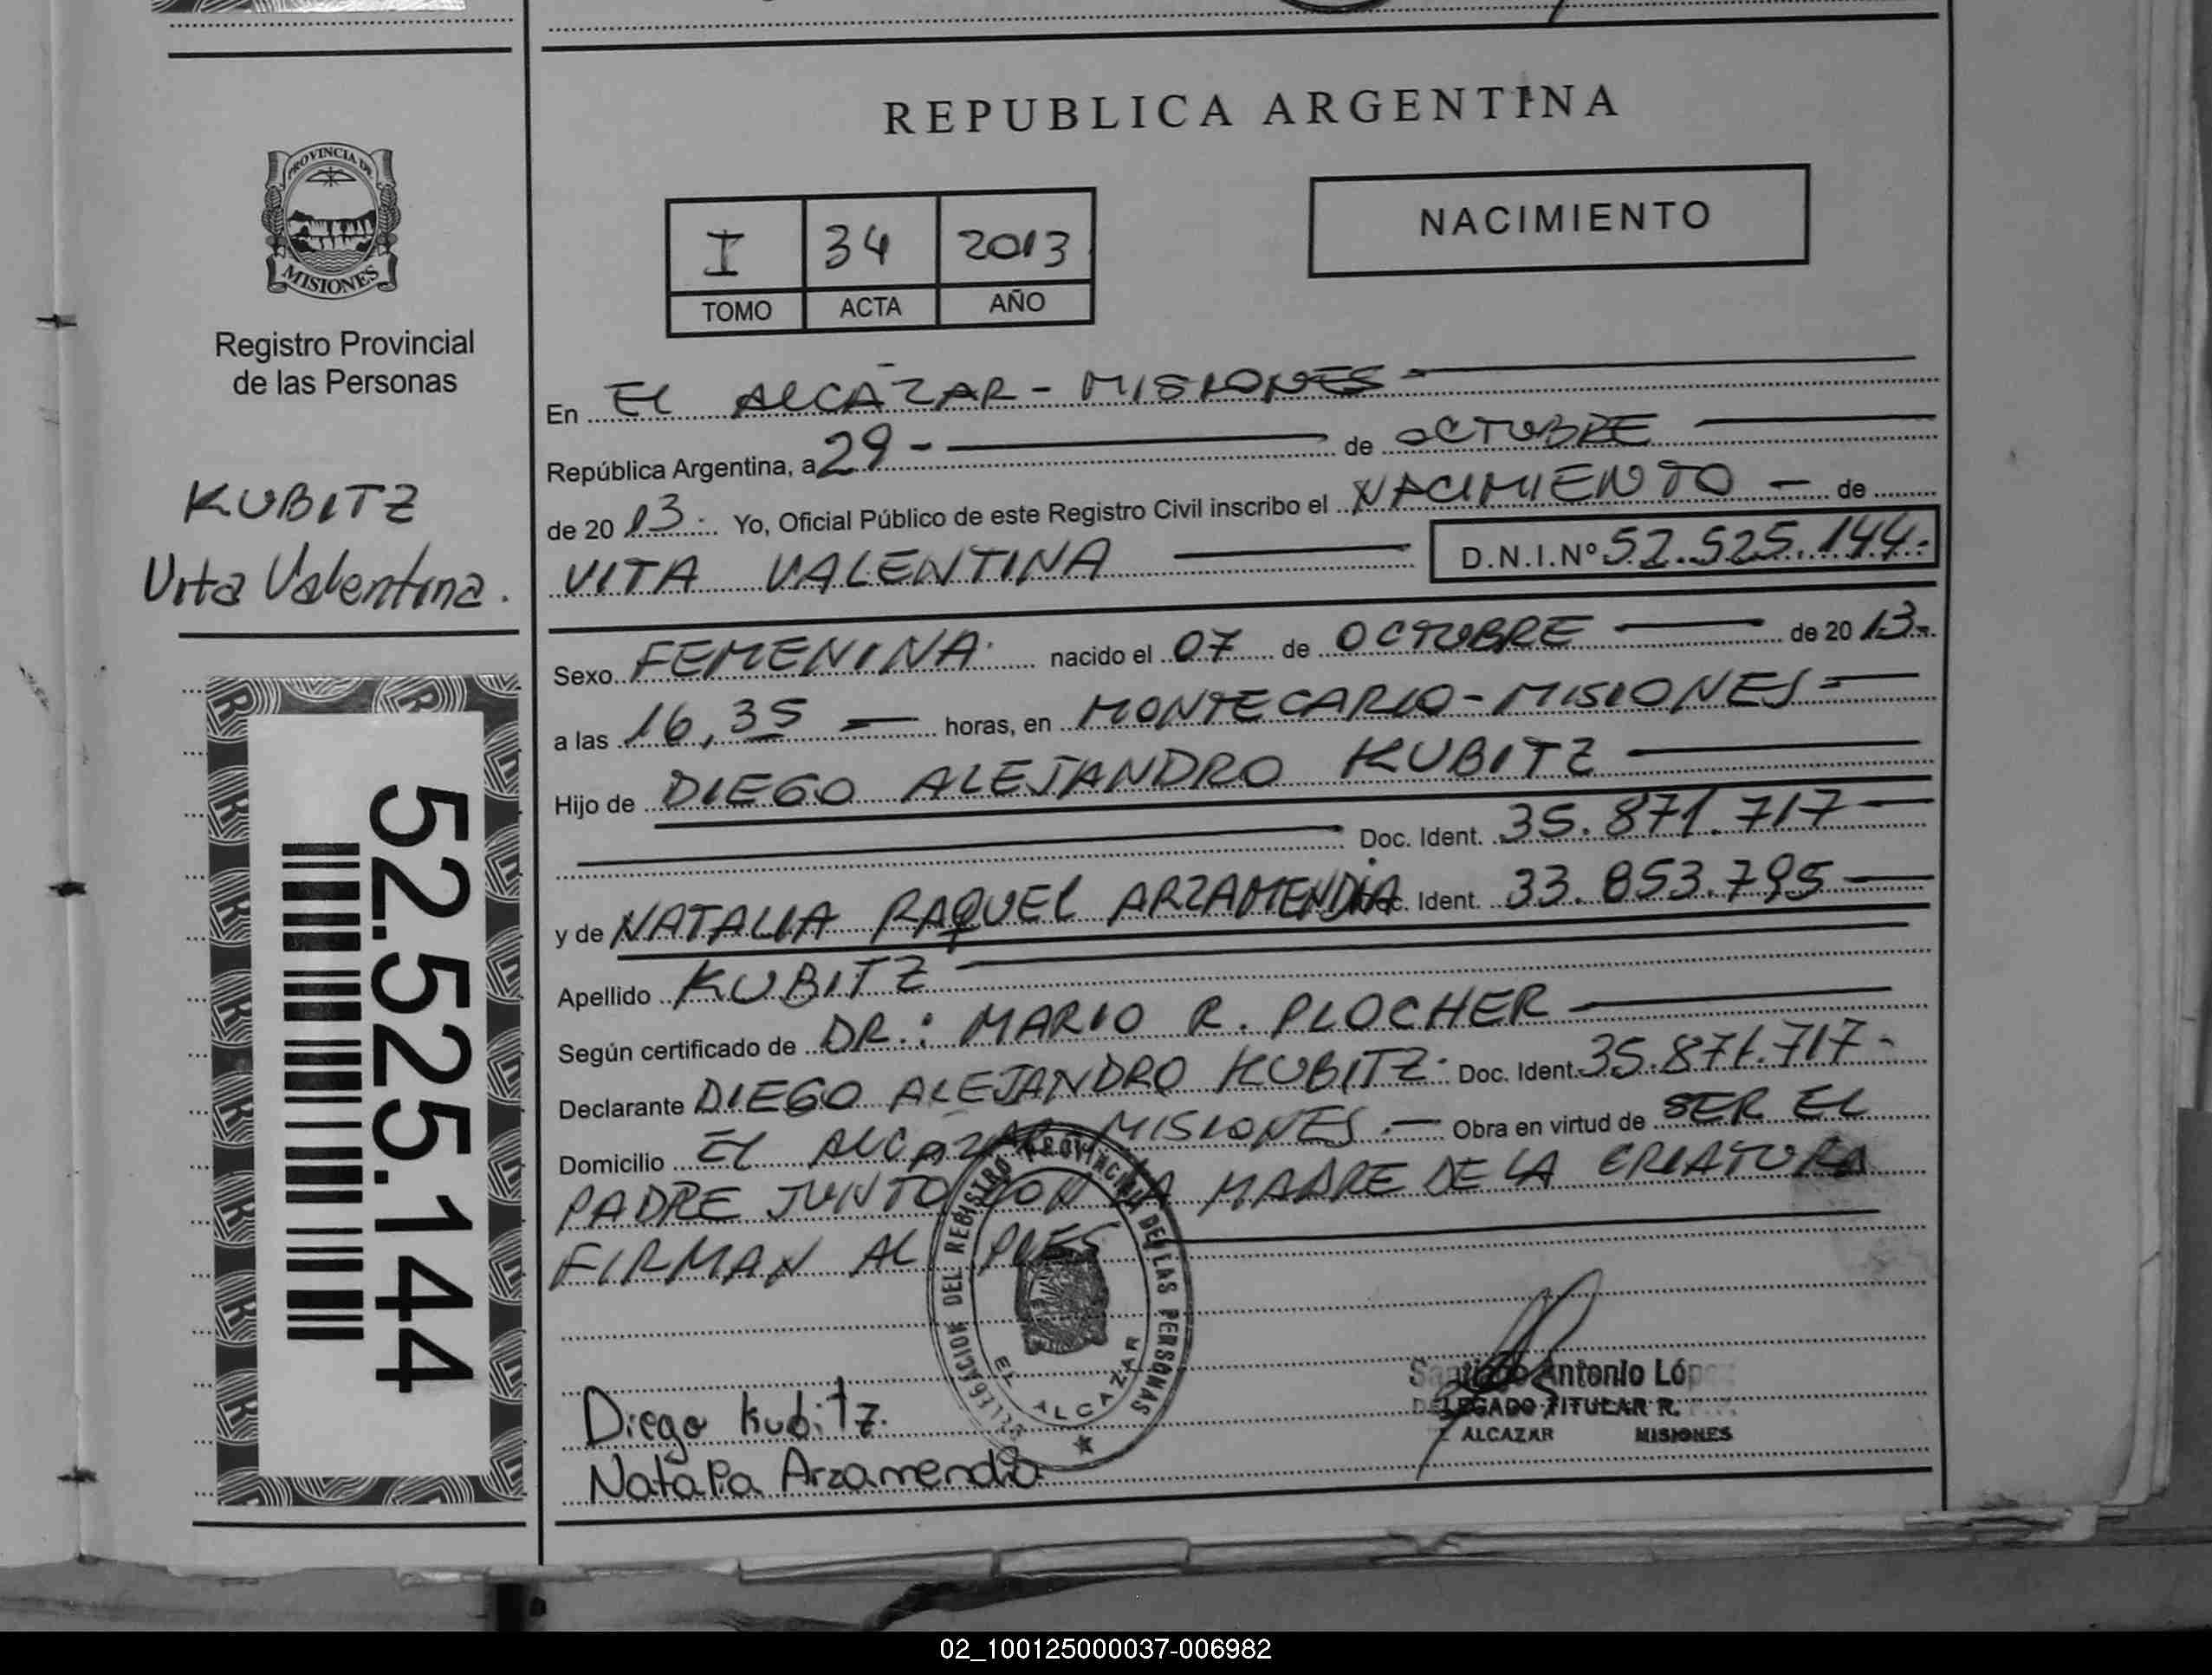 REPUBLICA ARGENTINA
PROVINCIA DE
MISIONES
Registro Provincial
de las Personas
KUBITZ
Vita Valentina.
52.525.144
NACIMIENTO
I 34 2013
TOMO ACTA AÑO
En EL ALCAZAR - MISIONES
República Argentina, a 29 - de OCTUBRE
de 20 13. Yo, Oficial Público de este Registro Civil inscribo el NACIMIENTO - de
VITA VALENTINA D.N.I.Nº 52.525.144.
Sexo FEMENINA. nacido el 07 de OCTUBRE de 20 13.
a las 16,35 horas, en MONTECARLO - MISIONES
Hijo de DIEGO ALEJANDRO KUBITZ
Doc. Ident. 35.871.717
y de NATALIA RAQUEL ARZAMENDIA Doc. Ident. 33.853.795
Apellido KUBITZ
Según certificado de DR.: MARIO R. PLOCHER
Declarante DIEGO ALEJANDRO KUBITZ. Doc. Ident. 35.871.717-
Domicilio EL ALCAZAR MISIONES. Obra en virtud de SER EL
PADRE JUNTO CON LA MADRE DE LA CRIATURA
FIRMAN AL PIES
REGISTRO PROVINCIAL DE LAS PERSONAS
EL ALCAZAR
Diego Kubitz.
Natalia Arzamendia
Santiago Antonio López
DELEGADO TITULAR R.
ALCAZAR MISIONES
02_100125000037-006982